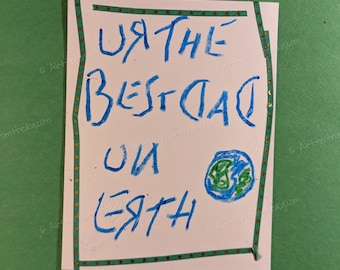 UR THE
BEST DAD
UN
ERTH